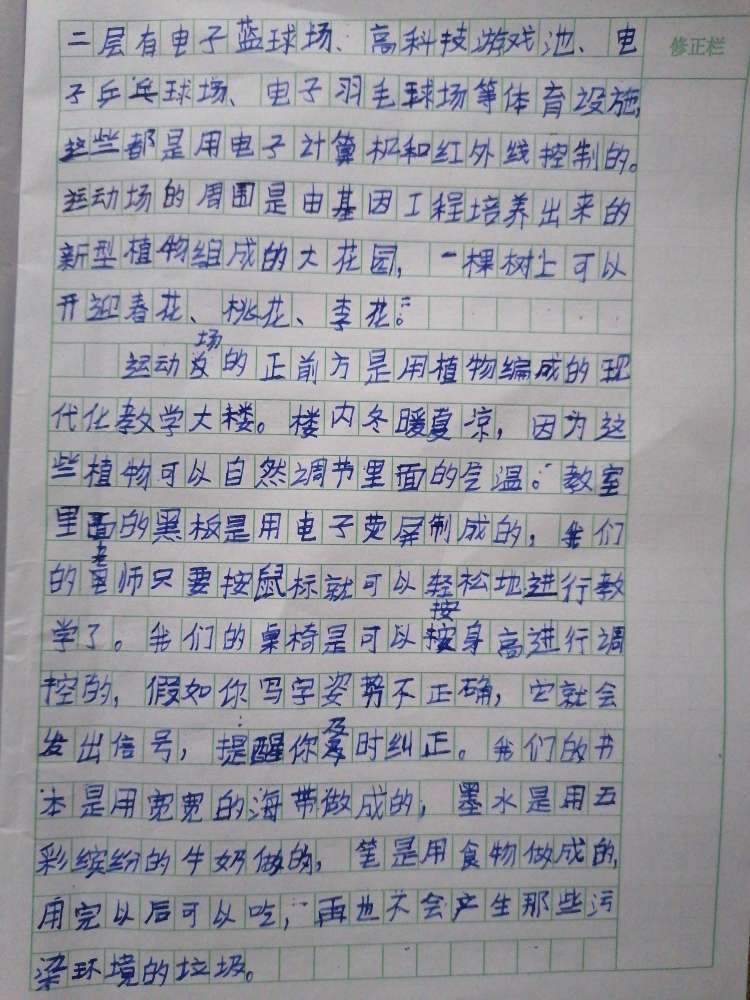 修正栏
二层有电子蓝球场、高科技游戏池、电
子乒乓球场、电子羽毛球场等体育设施,
这些都是用电子计算机和红外线控制的。
运动场的周围是由基因工程培养出来的
新型植物组成的大花园,一棵树上可以
开迎春花、桃花、李花。
运动场的正前方是用植物编成的现
代化教学大楼。楼内冬暖夏凉,因为这
些植物可以自然调节里面的气温。教室
里面的黑板是用电子荧屏制成的,我们
的老师只要按鼠标就可以轻松地进行教
学了。我们的桌椅是可以按身高进行调
控的,假如你写字姿势不正确,它就会
发出信号,提醒你及时纠正。我们的书
本是用宽宽的海带做成的,墨水是用五
彩缤纷的牛奶做的,笔是用食物做成的,
用完以后可以吃,再也不会产生那些污
染环境的垃圾。